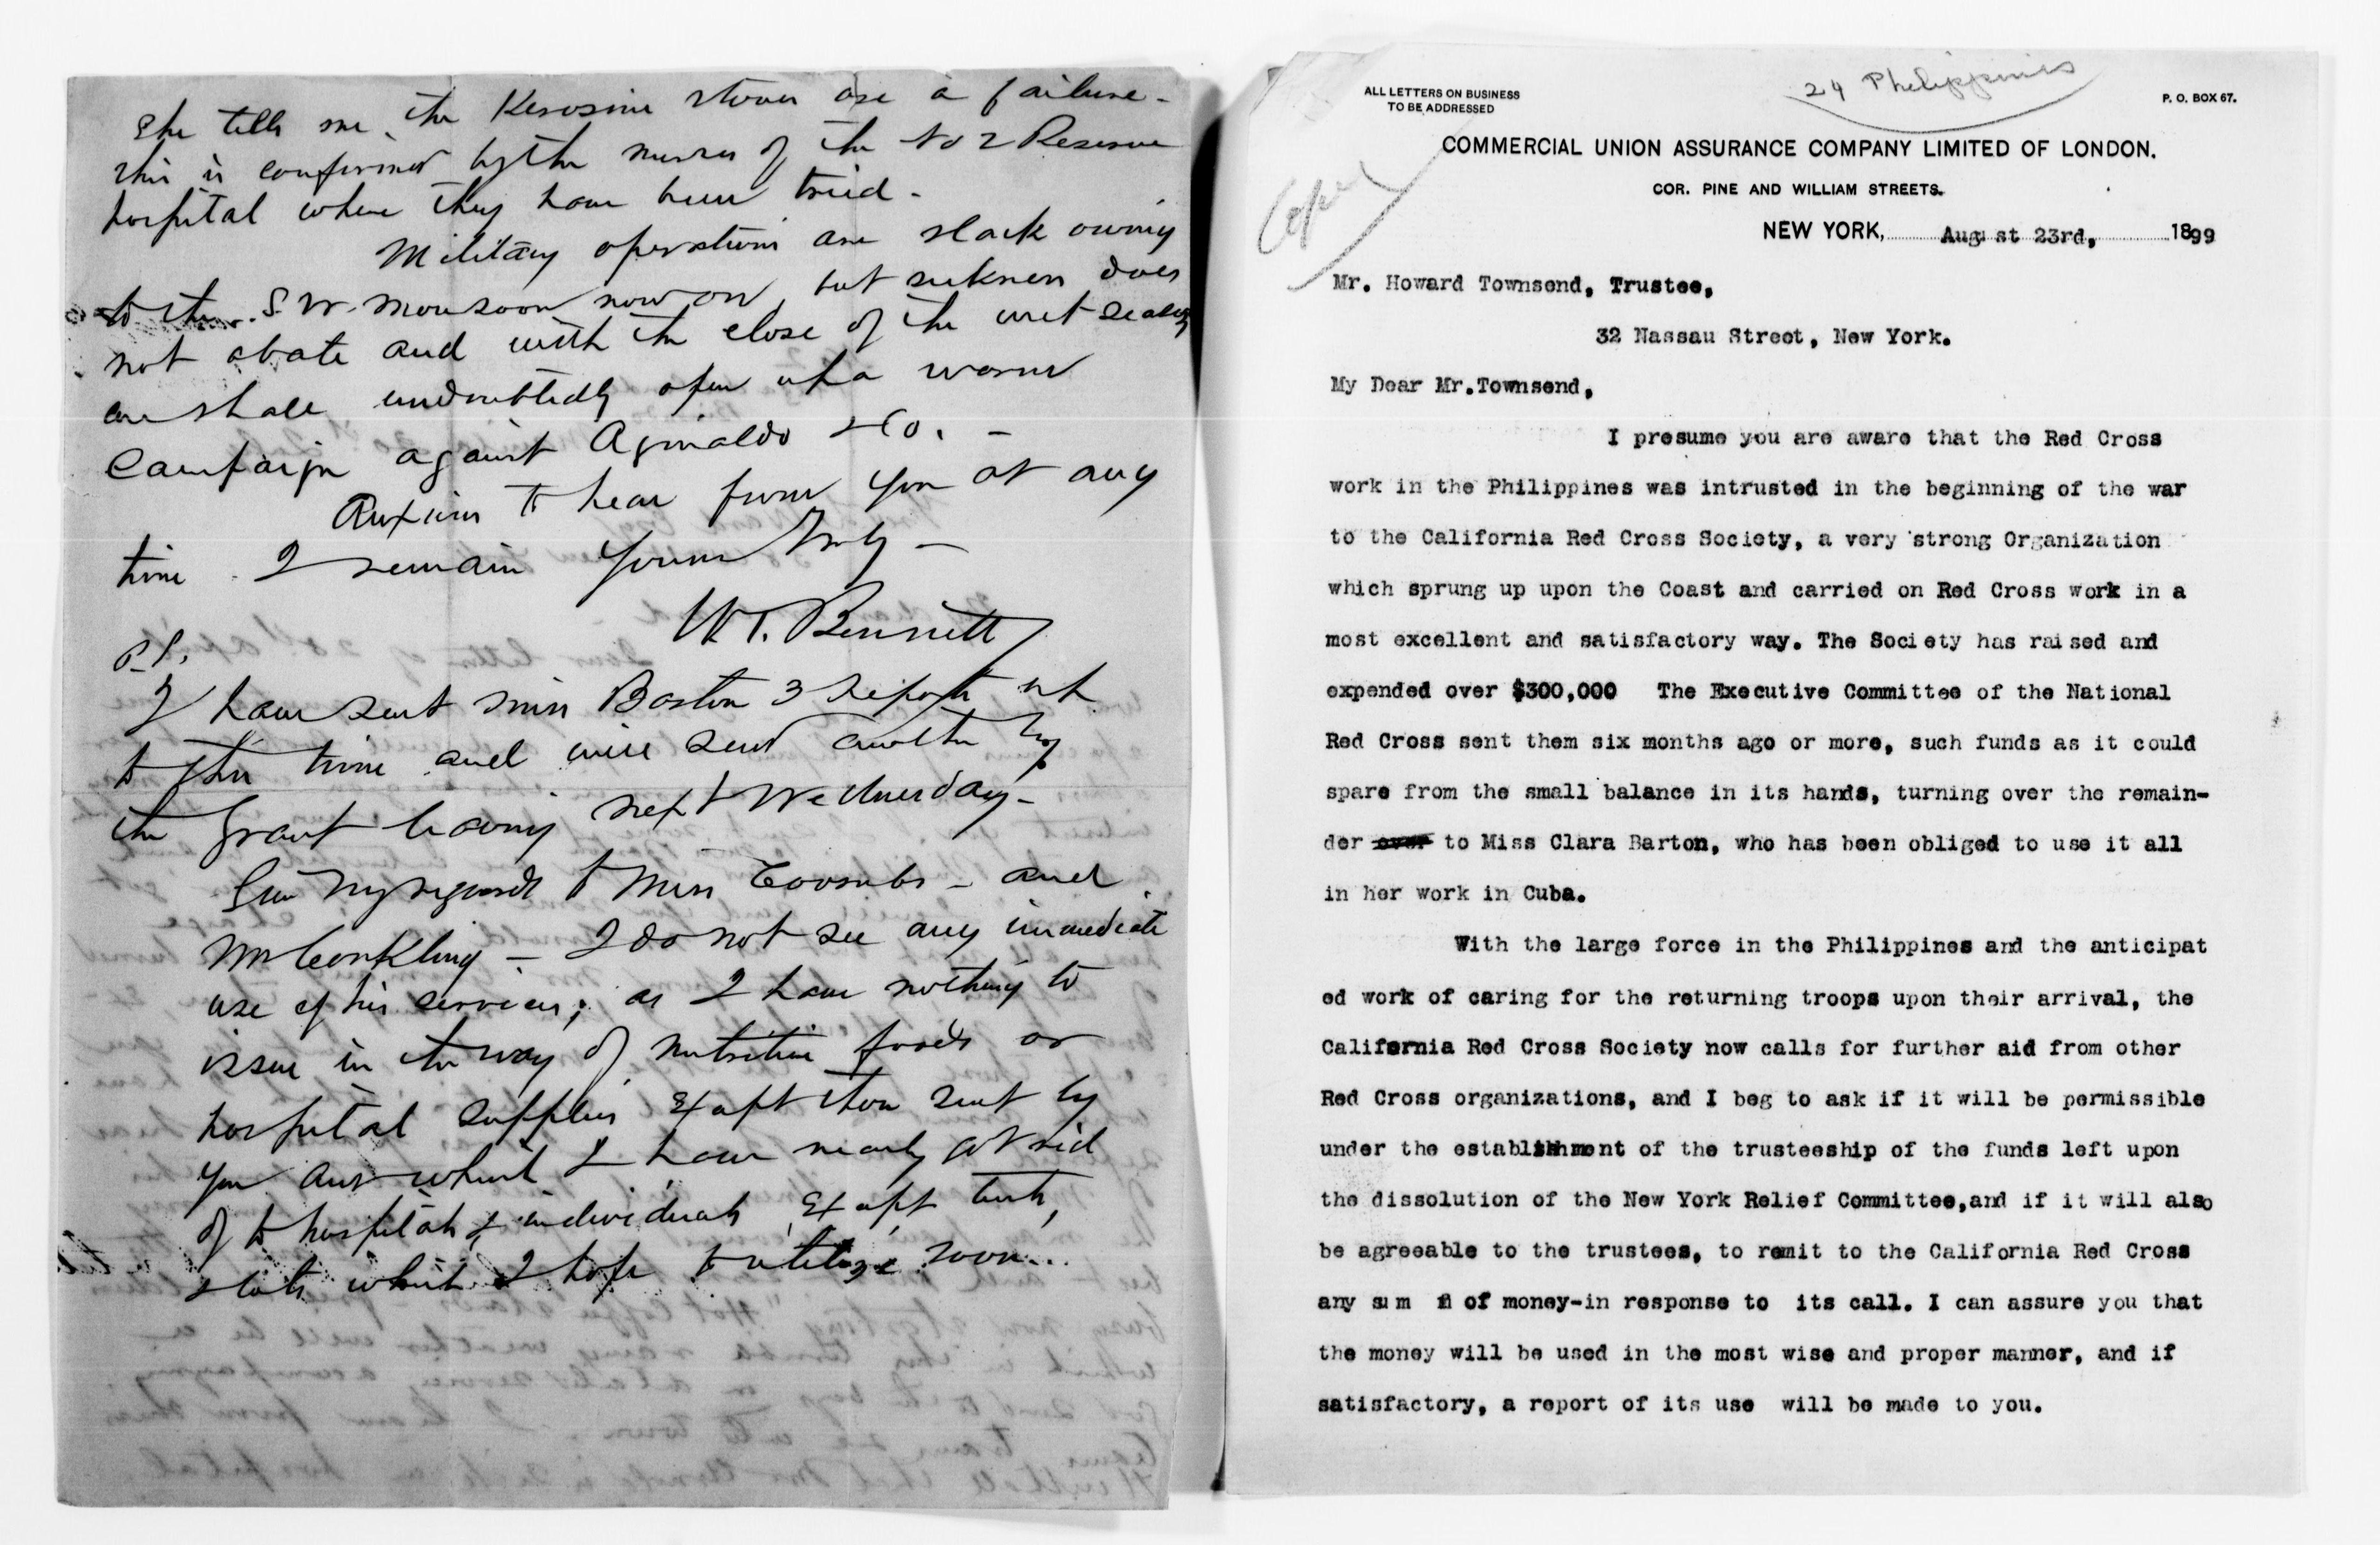 She tells me, the Kerosine stoves are a failure -
this is confirmed by the nurses of the No 2 Reserve
hospital where they have been tried -
Military operations are slack owing
to the S. W. Monsoon now on, but sickness does
not abate and with the close of the wet season
we shall undoubtedly open up a warm
Campaign against Aginaldo & Co. -
Anxious to hear from you at any
time I remain Yours Truly -
W. T. Bennett
P.S.
I have sent Miss Boston 3 reports up
to this time and will send another by
the Grant leaving next Wednesday -
Give my regards to Miss Coombs - and
Mr Conkling - I do not see any immediate
use of his services; as I have nothing to
issue in the way of nutritive foods or
hospital supplies Except those sent by
you and which I have nearly got rid
of to hospitals & individuals, Except tents,
slats which I hope to utilize soon...
24 Philippines
ALL LETTERS ON BUSINESS
TO BE ADDRESSED
P. O. BOX 67.
COMMERCIAL UNION ASSURANCE COMPANY LIMITED OF LONDON.
COR. PINE AND WILLIAM STREETS.
Copy
NEW YORK, August 23rd, 1899
Mr. Howard Townsend, Trustee,
32 Nassau Street, New York.
My Dear Mr.Townsend,
I presume you are aware that the Red Cross
work in the Philippines was intrusted in the beginning of the war
to the California Red Cross Society, a very strong Organization
which sprung up upon the Coast and carried on Red Cross work in a
most excellent and satisfactory way. The Society has raised and
expended over $300,000 The Executive Committee of the National
Red Cross sent them six months ago or more, such funds as it could
spare from the small balance in its hands, turning over the remain-
der over to Miss Clara Barton, who has been obliged to use it all
in her work in Cuba.
With the large force in the Philippines and the anticipat
ed work of caring for the returning troops upon their arrival, the
California Red Cross Society now calls for further aid from other
Red Cross organizations, and I beg to ask if it will be permissible
under the establishment of the trusteeship of the funds left upon
the dissolution of the New York Relief Committee,and if it will also
be agreeable to the trustees, to remit to the California Red Cross
any sum of money-in response to its call. I can assure you that
the money will be used in the most wise and proper manner, and if
satisfactory, a report of its use will be made to you.